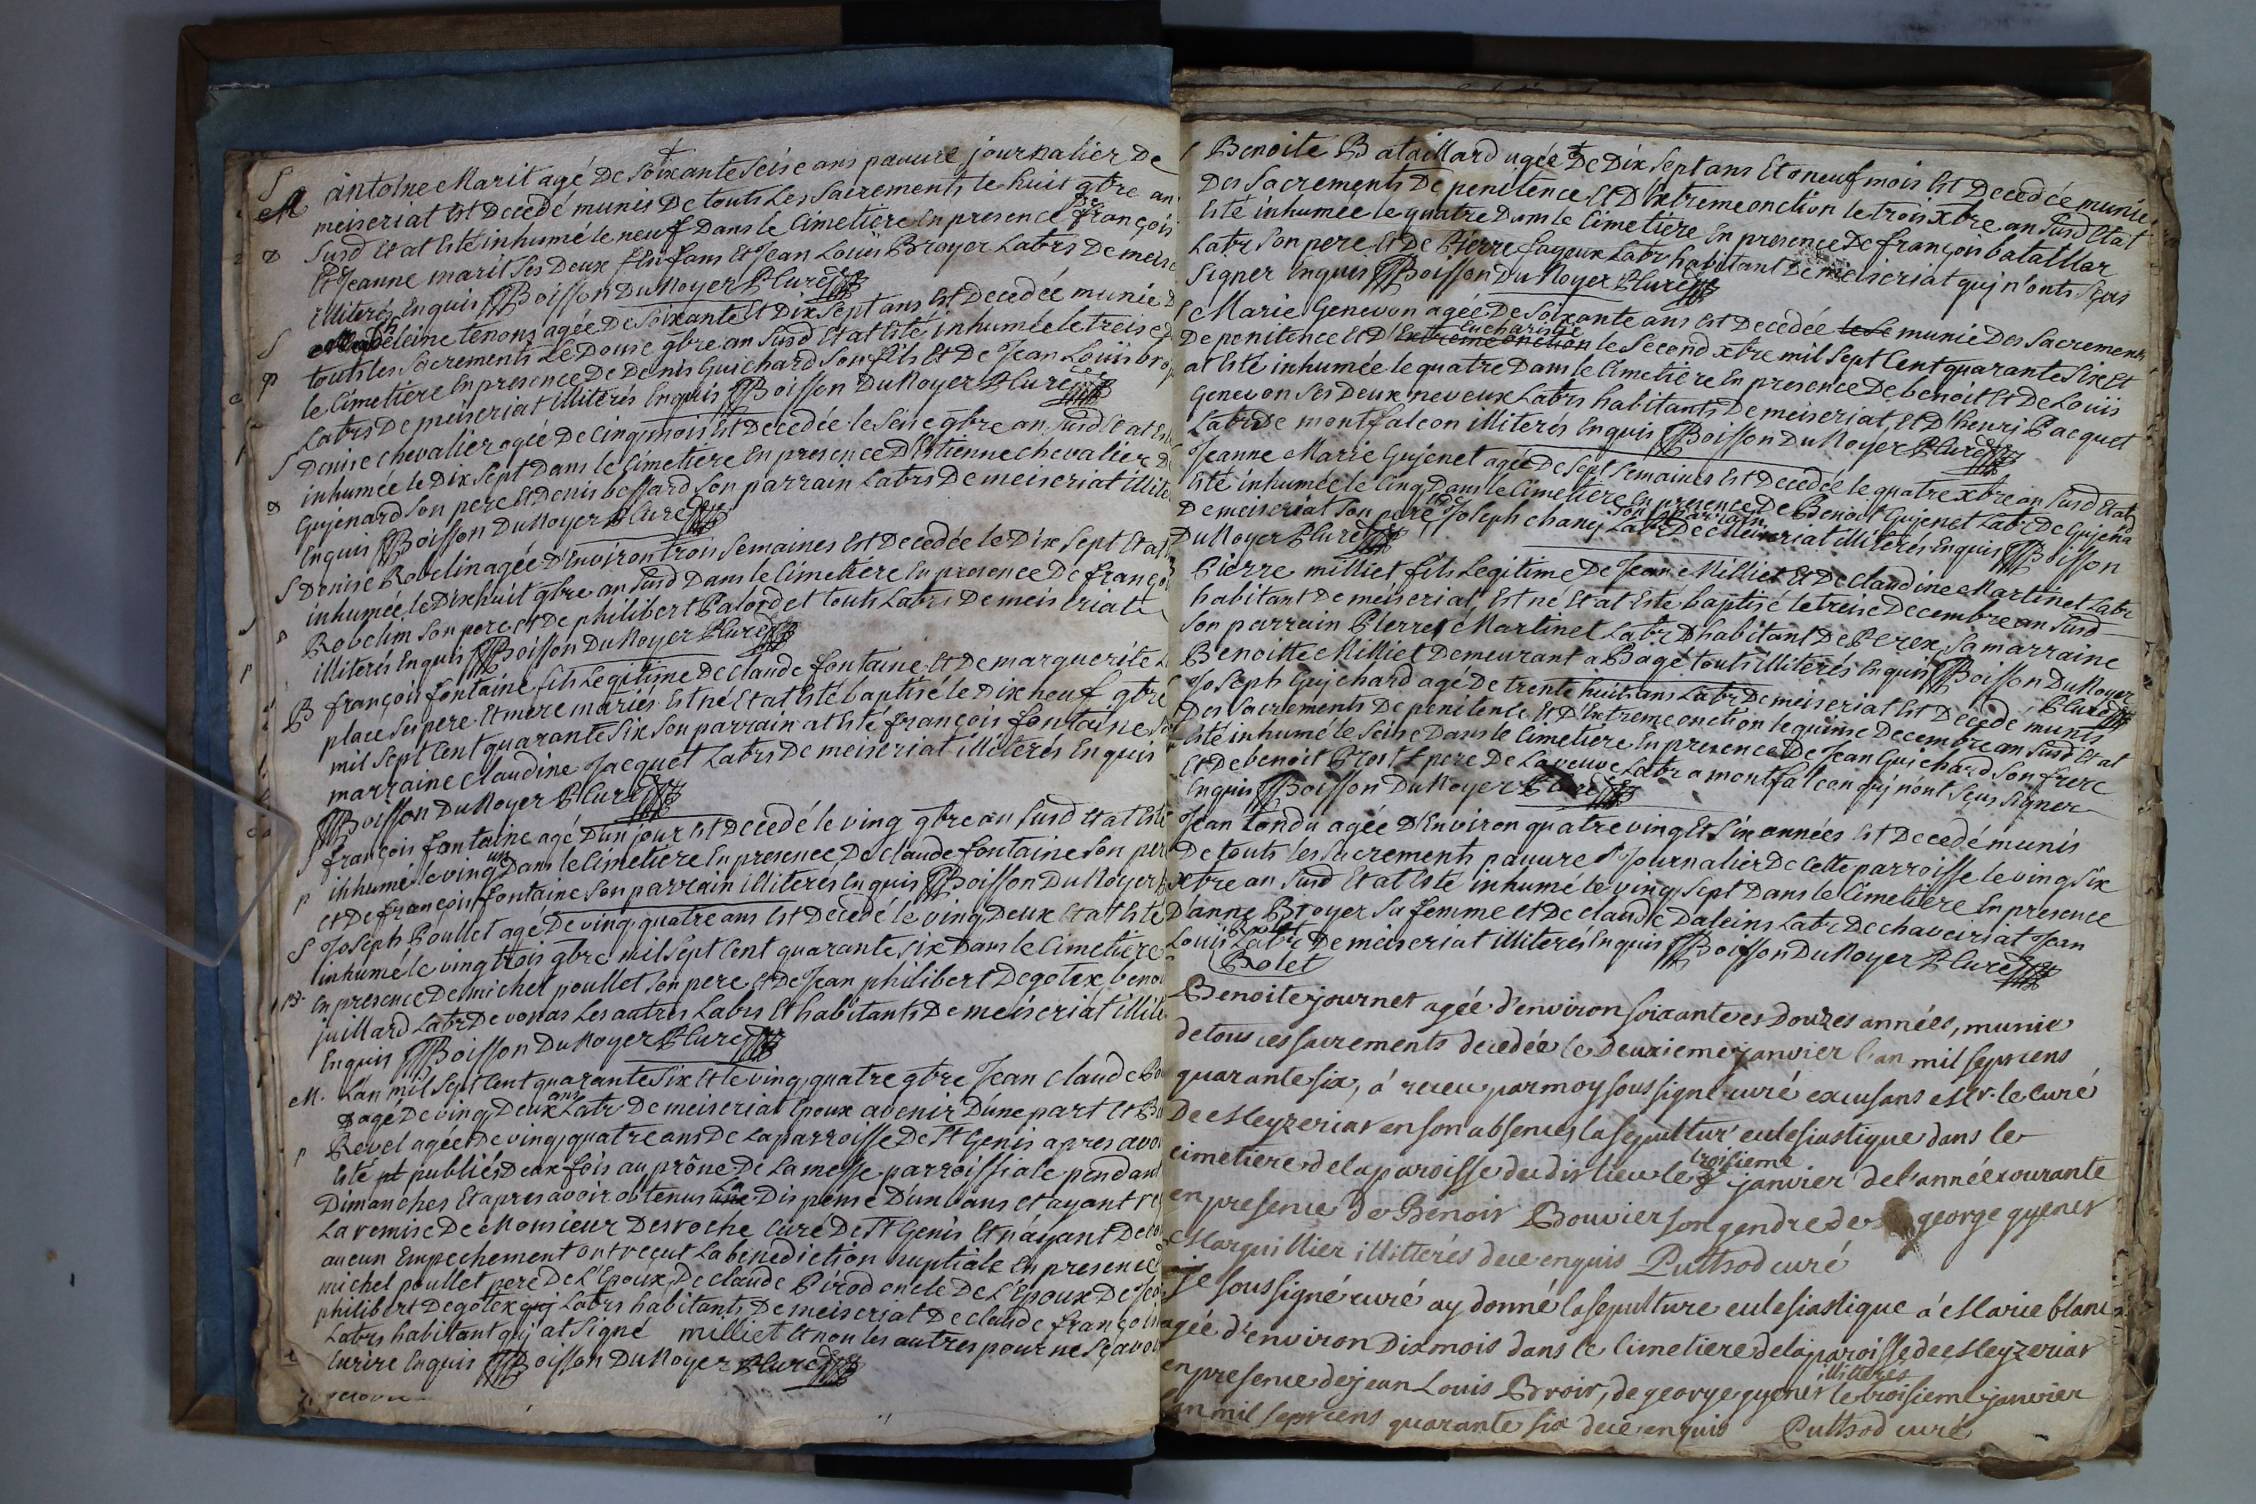 S
M antoine Marit agé De Soixante Seise ans pauvre journalier De
meiseriat Est Decedé munis De touts Les Sacrements le huit 9bre an
Susd Et at Esté inhumé le neuf Dans le Cimetiere En presence De françois
Et Jeanne marit Ses Deux Enfans Et Jean Louis Broyer Labrs De meise
illiterés Enquis Boisson Du Noyer Curé
S Madeleine tenons agée De Soixante Et Dix Sept ans Est Decedée munie D
touts les Sacrements Le Douse 9bre an Susd Et at Esté inhumée le treise D
le Cimetiere En presence De Denis Guichard Son fils Et De Jean Louis bro
Labrs De meiseriat illiterés Enquis Boisson Du Noyer Curé
S Denise Chevalier agée De Cinq mois Est Decedée le Seise 9bre an Susd Et at Esté
inhumée le Dix Sept Dans le Cimetiere En presence D'Estienne chevalier D
Gujenard Son pere Et Denis bossard Son parrain Labrs De meiseriat illite
Enquis Boisson Du Noyer Curé
S Denise Robelin agée D'Environ trois Semaines Est Decedée le Dix Sept Et at
inhumée le Dix huit 9bre an Susd Dans le Cimetiere En presence De franço
Robelin Son pere, Et De philibert Palordet touts Labrs De meiseriat
illiterés Enquis Boisson Du Noyer Curé
B françois fontaine fils Legitime De Claude fontaine Et De marguerite
place Ses pere Et mere mariés Est né Et at Esté baptisé le Dix neuf 9bre
mil Sept Cent quarante Six Son parrain at Esté françois fontaine Sa
marraine Claudine Jacquet Labrs De meiseriat illiterés Enquis
Boisson Du Noyer Curé
S françois fontaine agé D'un jour Est Decedé le ving 9bre an Susd Et at Esté
inhumé le ving un Dans le Cimetiere En presence De Claude fontaine Son per
et De françois fontaine Son parrain illiterés Enquis Boisson Du Noyer
S Joseph Poullet agé De ving quatre ans Est Decedé le ving Deux Et at Esté
inhumé le ving trois 9bre mil Sept Cent quarante Six Dans le Cimetiere
En presence De michel poullet Son pere Et De Jean philibert Degotex, beno
juillard Labr De vonas Les autres Labrs Et habitants De meiseriat illi
Enquis Boisson Du Noyer Curé
M. Lan mil Sept Cent quarante Six Et le ving quatre 9bre Jean Claude
agé De ving Deux ans Labr De meiseriat Epoux avenir D'une part Et
Revel agée De ving quatre ans De La parroisse De St Genis apres avoi
Esté publiés Deux fois au prône De La messe parroissiale pendant
Dimanches Et apres avoir obtenus La Dispense D'un bans Et ayant re
La remise De Monsieur Desroche Curé De St Genis Et n'ayant Deco
aucun Empechement ont reçut La benediction nuptiale En presence
michel poullet pere De L'Epoux, De Claude Pérod oncle De L'Epoux De Jea
philibert Degotex Labrs habitants De meiseriat De Claude françois
Labrs habitant quj at Signé milliet Et non les autres pour ne Sçavoir
Ecrire Enquis Boisson Du Noyer Curé
S Benoite Bataillard agée De Dix Sept ans Et neuf mois Est Decedée munie
Des Sacrements De penitence Et D'Extremeonction le trois Xbre an Susd Et at
Esté inhumée le quatre Dans le Cimetiere En presence De françois bataillar
Labr Son pere Et De Pierre fayoux Labr habitant De meiseriat quj n'onts Sçus
Signer Enquis Boisson Du Noyer Curé
S Marie Genevon agée De Soixante ans Est Decedée munie Des Sacrements
De penitence Et D' Eucharistie Extremeonction le Second Xbre mil Sept Cent quarante Six Et
at Esté inhumée le quatre Dans le Cimetiere En presence De benoit Et De Louis
Genevon Ses Deux neveux Labrs habitants De meiseriat, Et D'henri Pacquet
Labr De montfalcon illiterés Enquis Boisson Du Noyer Curé
Jeanne Marie Gujenet agée De Sept Semaines Est Decedée le quatre Xbre an Susd Et at
Esté inhumée le Cinq Dans le Cimetiere En presence De Benoit Gujenet Labr De Gujena
De meiseriat Son pere Joseph chanej Son parrain Labr De Meiseriat illiterés Enquis Boisson
Du Noyer Curé
Pierre milliet fils Legitime De Jean Milliet Et De Claudine Martinet Labr
habitant De meiseriat, Est né Et at Esté baptisé le treise Decembre an Susd
Son parrain Pierre Martinet Labr D habitant De Perex, Sa marraine
Benoitte Milliet Demeurant a Bagé touts illiterés Enquis Boisson Du Noyer
Curé
Joseph Gujchard agé De trente huit ans Labr De meiseriat Est Decedé munis
Des Sacrements De penitence Et D'Extremeonction le quinse Decembre an Susd Et at
Esté inhumé le Seise Dans le Cimetiere En presence De Jean Guichard Son frere
Et De benoit Prost pere De La veuve Labr a montfalcon quj n'ont Sçus Signer
Enquis Boisson Du Noyer Curé
Jean tondu agée D'Environ quatre ving Et Six années Est Decedé munis
De touts les Sacrements pauvre Journalier De Cette parroisse le ving Six
Xbre an Susd Et at Esté inhumé le ving Sept Dans le Cimetiere En presence
D'anne Broyer Sa femme et De Claude Daleins Labr De chaveiriat Jean
Louis Rolet Labr De meiseriat illiterés Enquis Boisson Du Noyer Curé
Rolet
Benoite journet agée d'environ soixante et Douzes années, munie
de tous ces sacrements decedée le Deuxieme janvier l'an mil sept cens
quarante six, à receu par moy soussigné curé excusans Mr. le curé
De Meyzeriat en son absence la sepultur' eclesiastique dans le
cimetiere de la paroisse du dit lieu le troisieme janvier de l'année courante
en presence de Benoit Bouvier son gendre de george gyenet
Marguillier illitterés de ce enquis Puthod curé
Je soussigné curé ay donné la sepulture eclesiastique à Marie blanc
agée d'environ Dix mois dans le Cimetiere de la paroisse de Meyzeriat
en presence de jean Louis Broir, de george gyenet illitteres le troisieme janvier
an mil sept cens quarante six de ce enquis Puthod curé